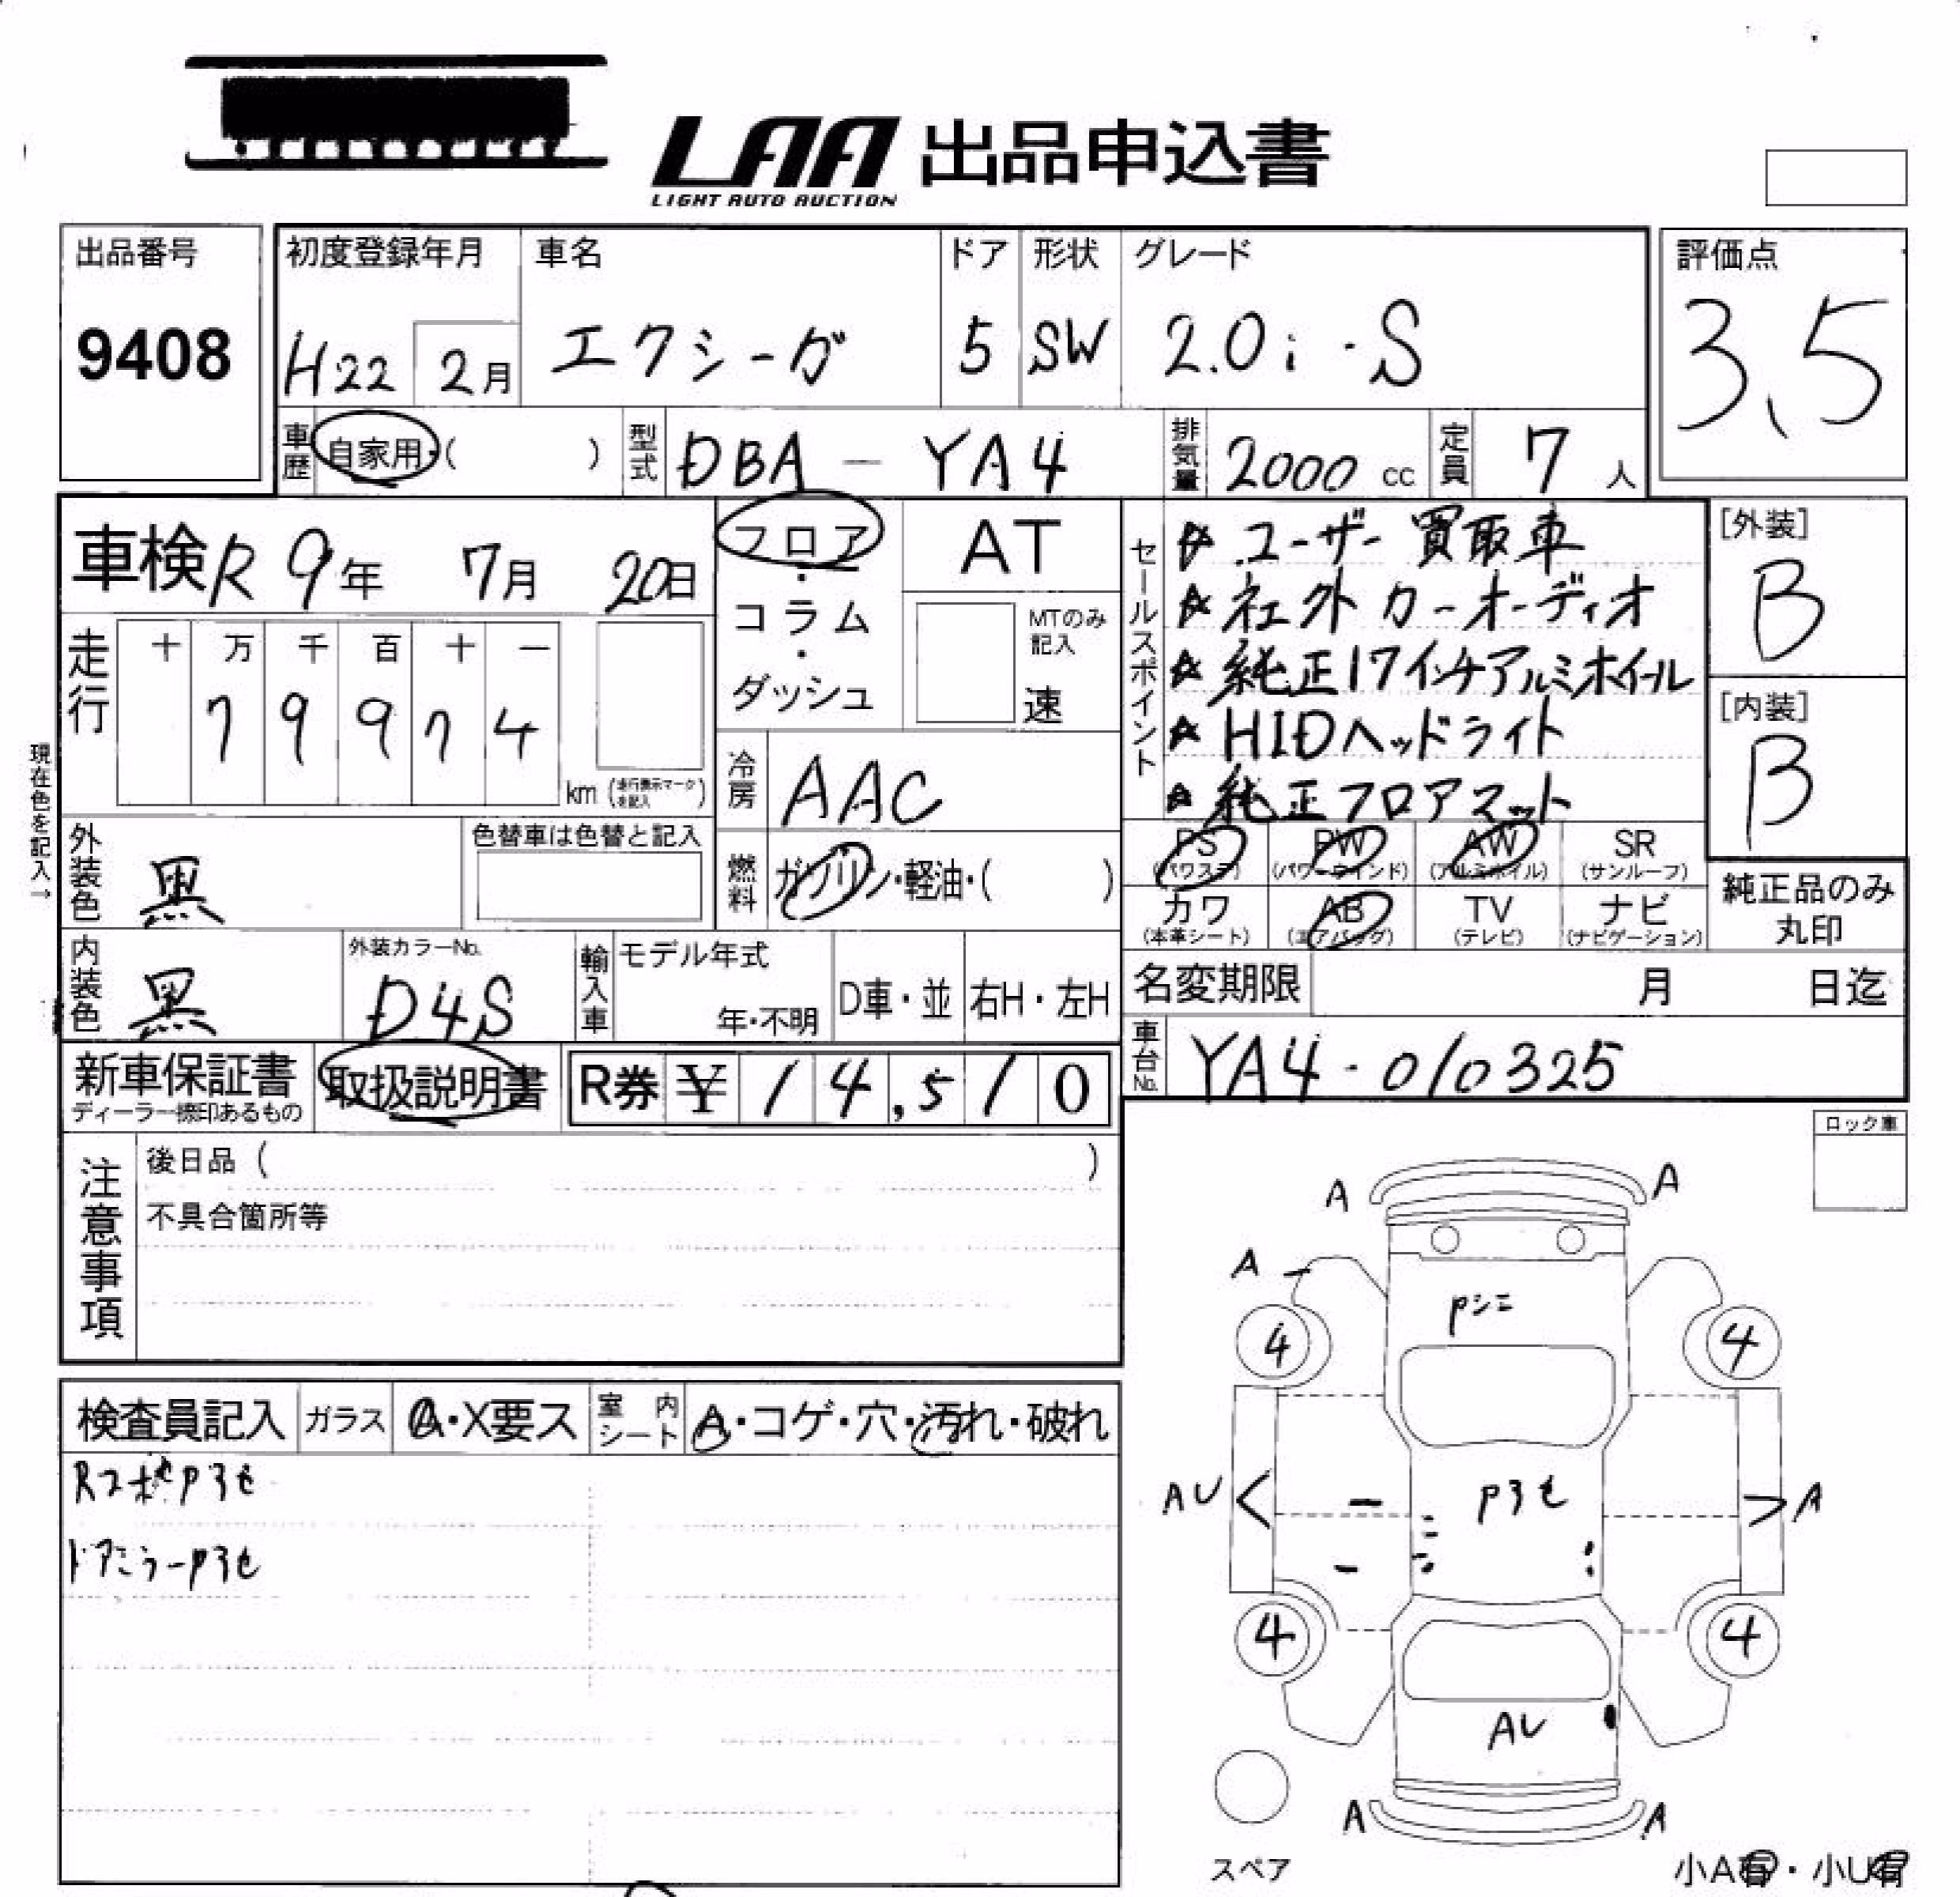 LAA 出品申込書
LIGHT AUTO AUCTION
出品番号
9408
初度登録年月
H22 2月
車名
エクシーガ
ドア
5
形状
SW
グレード
2.0i-S
評価点
3.5
車歴 自家用・( )
型式 DBA-YA4
排気量 2000 cc
定員 7 人
車検 R9年 7月 20日
フロア・コラム・ダッシュ
AT
MTのみ記入
速
セールスポイント
☆ユーザー買取車
☆社外カーオーディオ
☆純正17インチアルミホイール
☆HIDヘッドライト
☆純正フロアマット
[外装]
B
[内装]
B
走行
十 万 千 百 十 一
7 9 9 7 4
km (走行表示マークを記入)
現在色を記入→
冷房 AAC
外装色 黒
色替車は色替と記入
燃料 ガソリン・軽油・( )
PS (パワステ)
PW (パワーウインド)
AW (アルミホイル)
SR (サンルーフ)
カワ (本革シート)
AB (エアバッグ)
TV (テレビ)
ナビ (ナビゲーション)
純正品のみ
丸印
内装色 黒
外装カラーNo.
D4S
輸入車
モデル年式
年・不明
D車・並
右H・左H
名変期限 月 日迄
車台No. YA4-010325
新車保証書
ディーラー捺印あるもの
取扱説明書
R券 ¥ 14,510
注意事項
後日品 ( )
不具合箇所等
ロック車
検査員記入
ガラス A・X要ス
室内シート A・コゲ・穴・汚れ・破れ
Rスポ
ドアミラー
A A
A
Pシミ
4 4
AU A
4 4
AU
A A
スペア
小A有・小U有